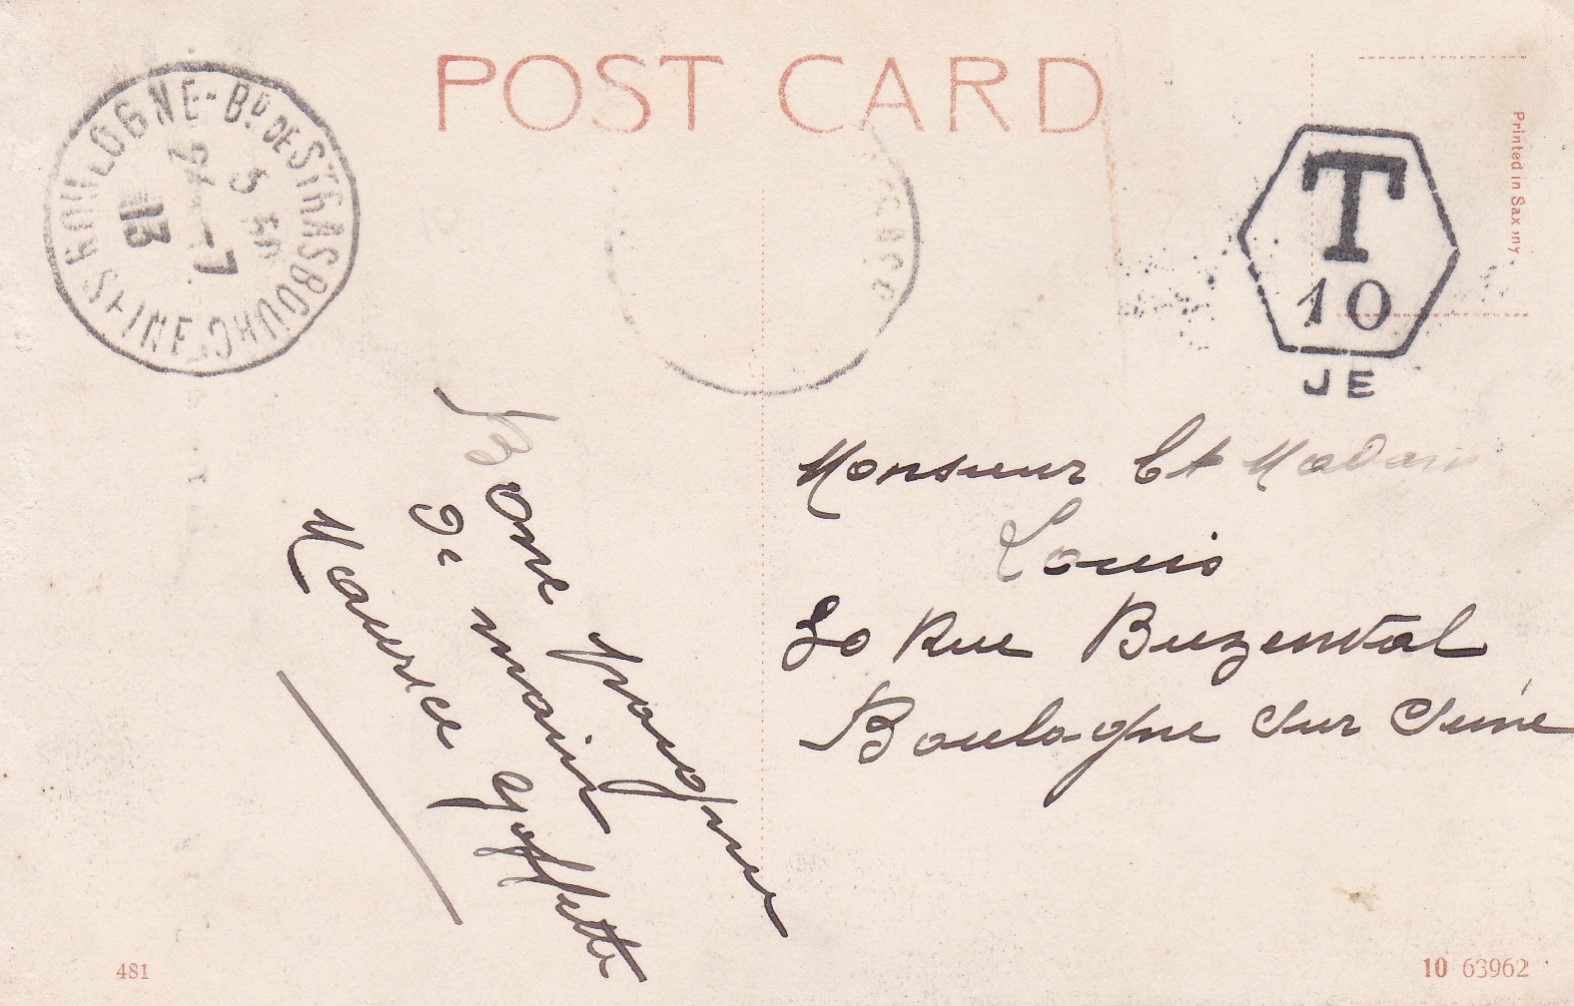 POST CARD
BOULOGNE-BD DE STRASBOURG
5 50
24 -7
13
SEINE
T
10
JE
Printed in Saxony
Bone pougne
De main
Maurice Goffette
Monsieur Et Madam
Louis
30 Rue Buzenval
Boulogne Sur Seine
481
10 63962